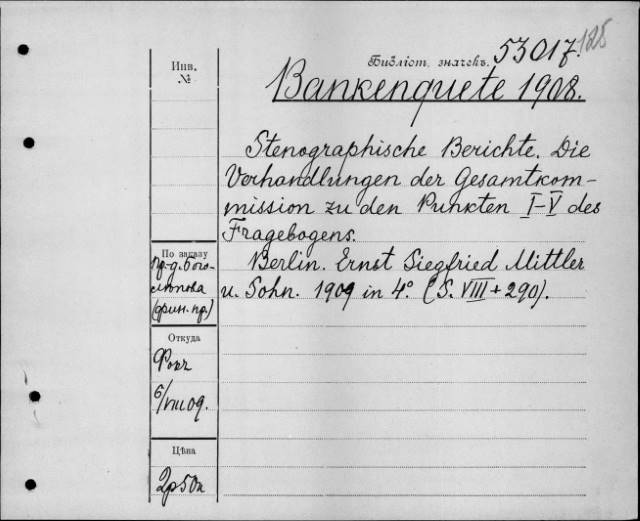 Библіот. значекъ. 53017. 185
Инв.
№
Bankenquete 1908.
Stenographische Berichte. Die
Verhandlungen der Gesamtkom-
mission zu den Punkten I-V des
Fragebogens.
Berlin. Ernst Siegfried Mittler
u. Sohn. 1909 in 4°. (S. VIII + 290).
По заказу
пр-д. Бого-
лѣпова
(фин. пр.)
Откуда
Фокъ
6/VIII 09.
Цѣна
2р50к